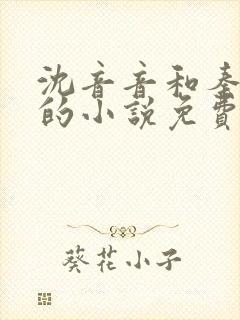 沈音音和秦
的小說免費
葵花小子